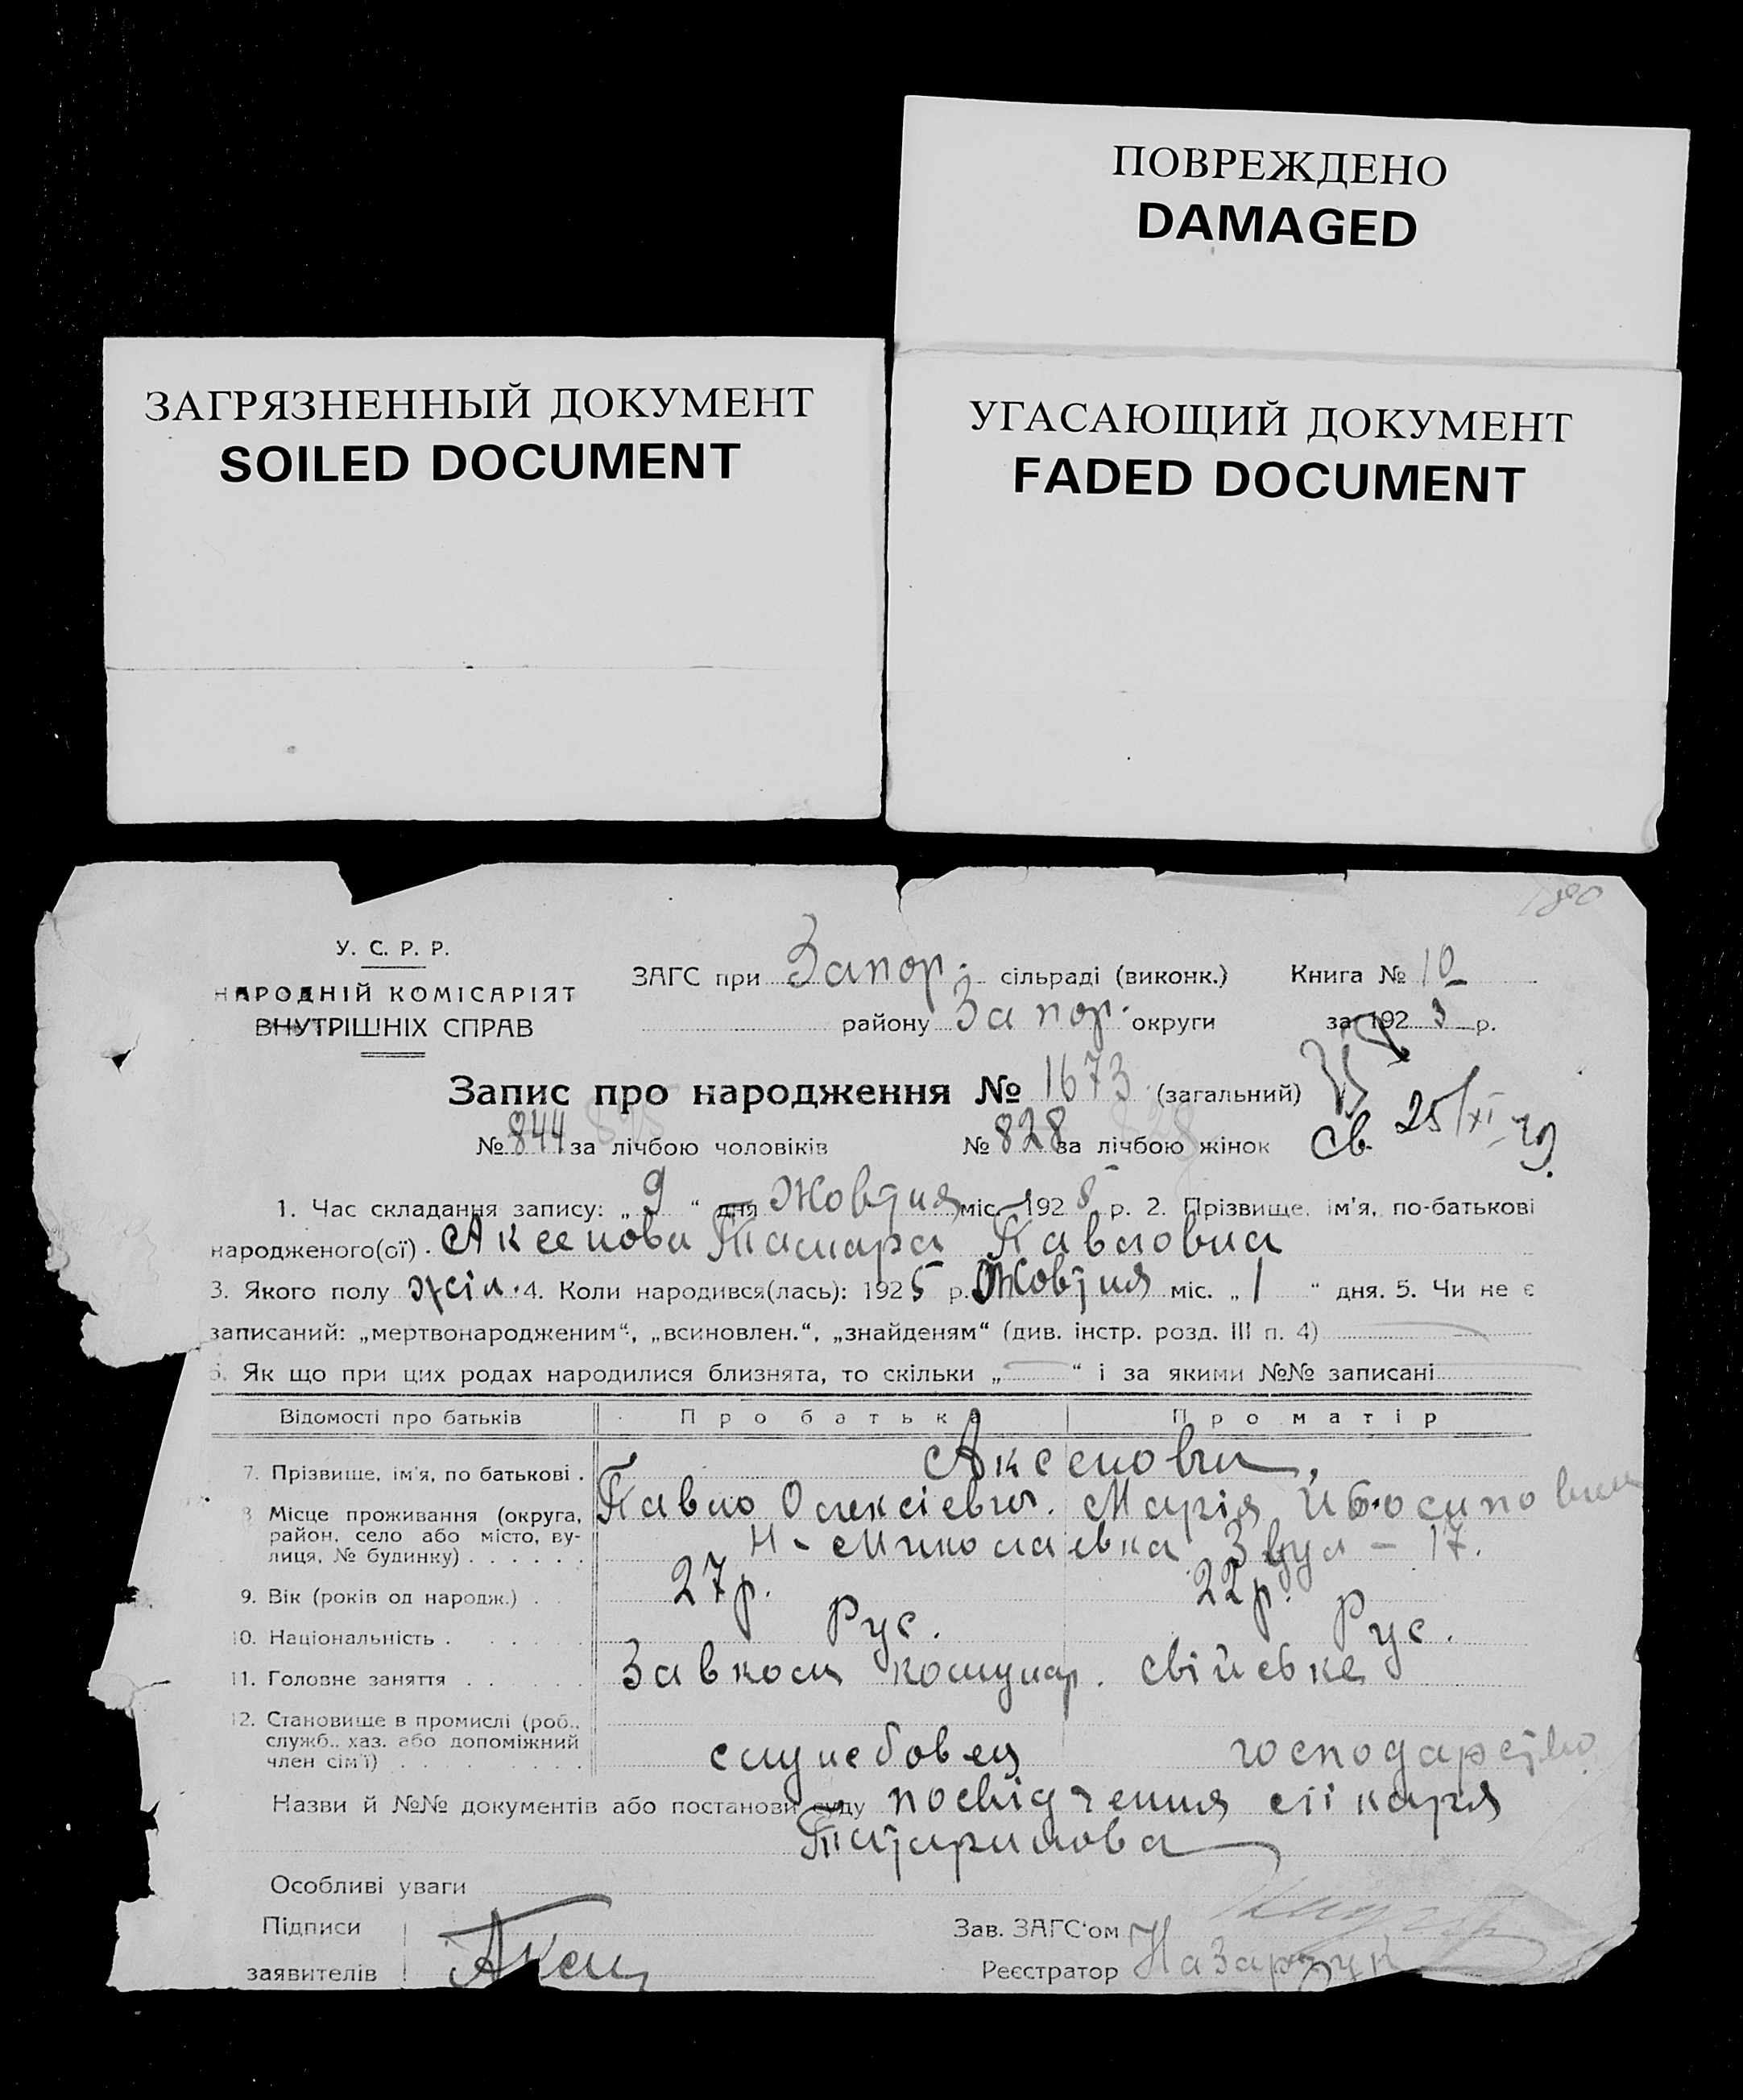 ПОВРЕЖДЕНО
DAMAGED
ЗАГРЯЗНЕННЫЙ ДОКУМЕНТ
SOILED DOCUMENT
УГАСАЮЩИЙ ДОКУМЕНТ
FADED DOCUMENT
У. С. Р. Р.
НАРОДНІЙ КОМІСАРІЯТ
ВНУТРІШНІХ СПРАВ
ЗАГС при Запор. сільраді (виконк.) Книга № 10
району Запор. округи за 192 р.
Запис про народження № 1673 (загальний)
№ 844 за лічбою чоловіків № 828 за лічбою жінок
св. 25/XI
1. Час складання запису: „ 9 “ дня Жовтня міс. 192 5 р. 2. Прізвище, ім'я, по-батькові
народженого(ої) . Аксенова Тамара Павловна
3. Якого полу жін. 4. Коли народився(лась): 192 5 р. Жовтня міс. „ 1 “ дня. 5. Чи не є
записаний: „мертвонародженим“, „всиновлен.“, „знайденям“ (див. інстр. розд. III п. 4)
6. Як що при цих родах народилися близнята, то скільки „ “ і за якими №№ записані
Відомості про батьків Про батька Про матір
7. Прізвище, ім'я, по батькові . Аксенови,
Павло Олексієвич. Марія
8. Місце проживання (округа,
район, село або місто, ву-
лиця, № будинку) . . . . . . Н-Миколаевка 3 вул – 17.
9. Вік (років од народж.) . . 27 р. 22 р.
10. Національність . . . . . . Рус. Рус.
11. Головне заняття . . . . . . Завком комунар. свійське
12. Становище в промислі (роб.,
служб., хаз. або допоміжний
член сім'ї) . . . . . . службовец господарство
Назви й №№ документів або постанови суду посвідчення лікаря
Татаринова
Особливі уваги
Підписи
заявителів Аксен
Зав. ЗАГС'ом
Реєстратор Назарчук